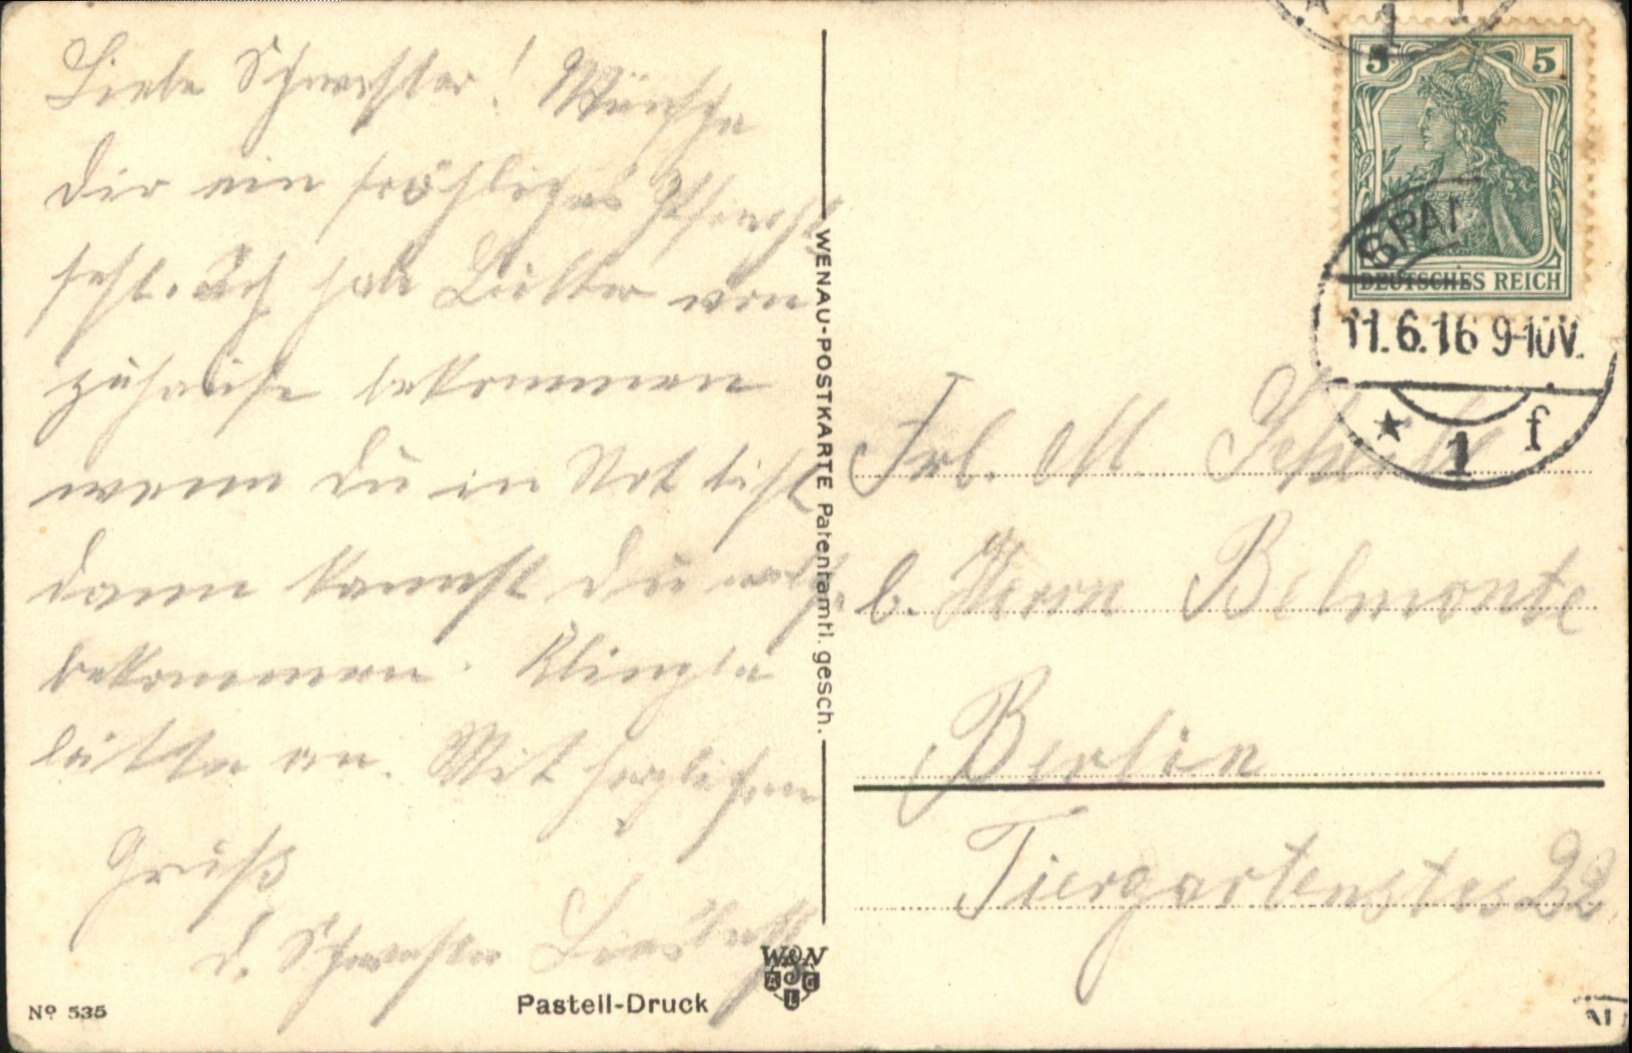 Liebe Schwester! Wünsche
dir ein fröhliches Pfingst
fest. Ich habe Butter von
zuhause bekommen
wenn du in Not bist
dann kannst du
bekommen. Klingle
bitte an. Mit herzlichem
Gruß
d. Schwester
WENAU-POSTKARTE Patentamtl. gesch.
No 535
Pastell-Druck
5 5
DEUTSCHES REICH
SPAN
11.6.16 9-10V.
* 1 f
Frl. M.
b. Herrn Belmonte
Berlin
Tiergartenstr 22